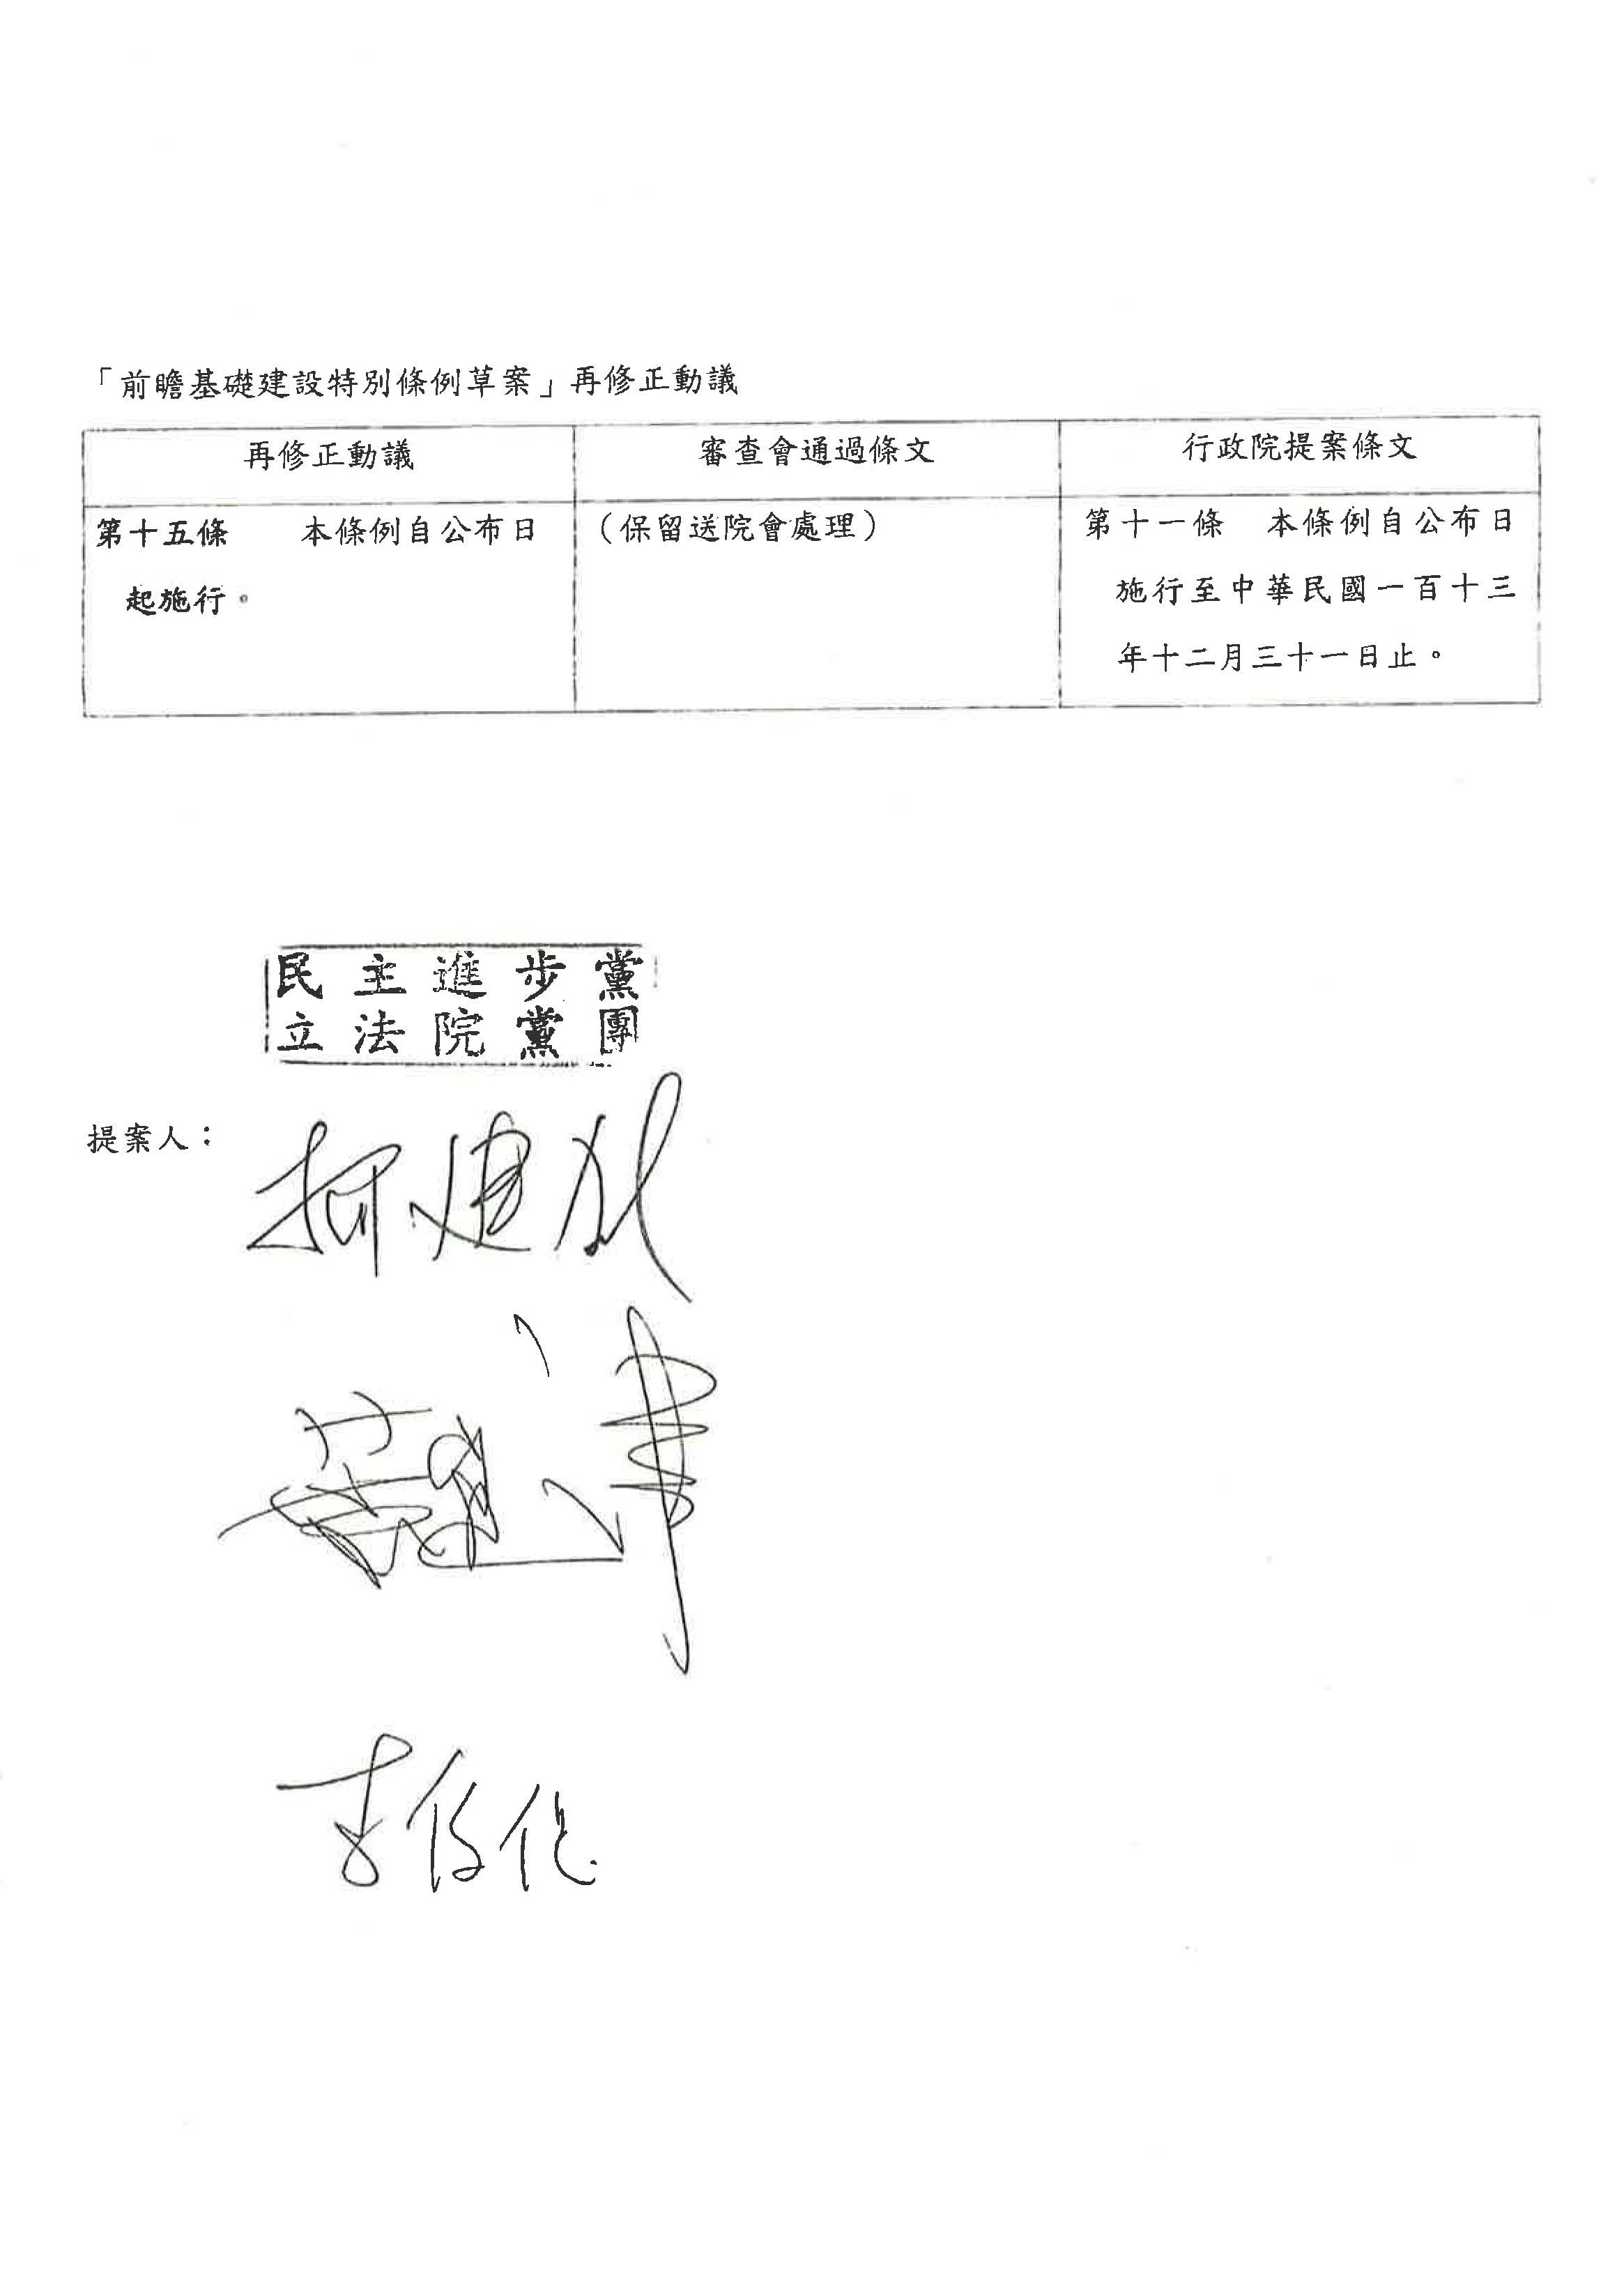 「前瞻基礎建設特別條例草案」再修正動議
再修正動議
審查會通過條文
行政院提案條文
第十五條　本條例自公布日
起施行。
（保留送院會處理）
第十一條　本條例自公布日
施行至中華民國一百十三
年十二月三十一日止。
民主進步黨
立法院黨團
提案人：
柯建銘
李俊俋